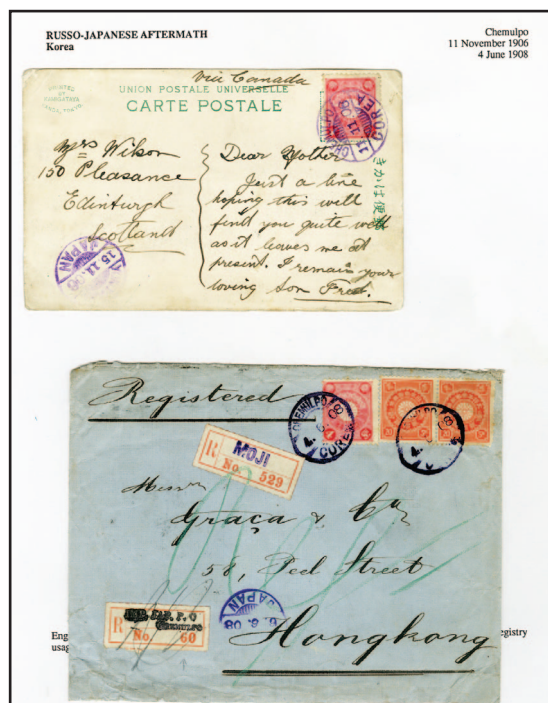 RUSSO-JAPANESE AFTERMATH
Korea
Chemulpo
11 November 1906
4 June 1908
via Canada
UNION POSTALE UNIVERSELLE
CARTE POSTALE
PRINTED
BY
11.11.06
COREA
きかは便郵
Mrs Wilson
150 Pleasance
Edinburgh
Scotland
Dear Mother
Just a line
hoping this will
find you quite well
as it leaves me at
present. I remain your
loving Son Fred.
15.11.06
JAPAN
Registered
CHEMULPO
COREA
4.6.08
R MOJI
No. 529
Messrs
Graça & Co
58, Peel Street
Hongkong
JAPAN
6.6.08
R JAP. P.O
CHEMULPO
No. 60
Eng
usag
egistry